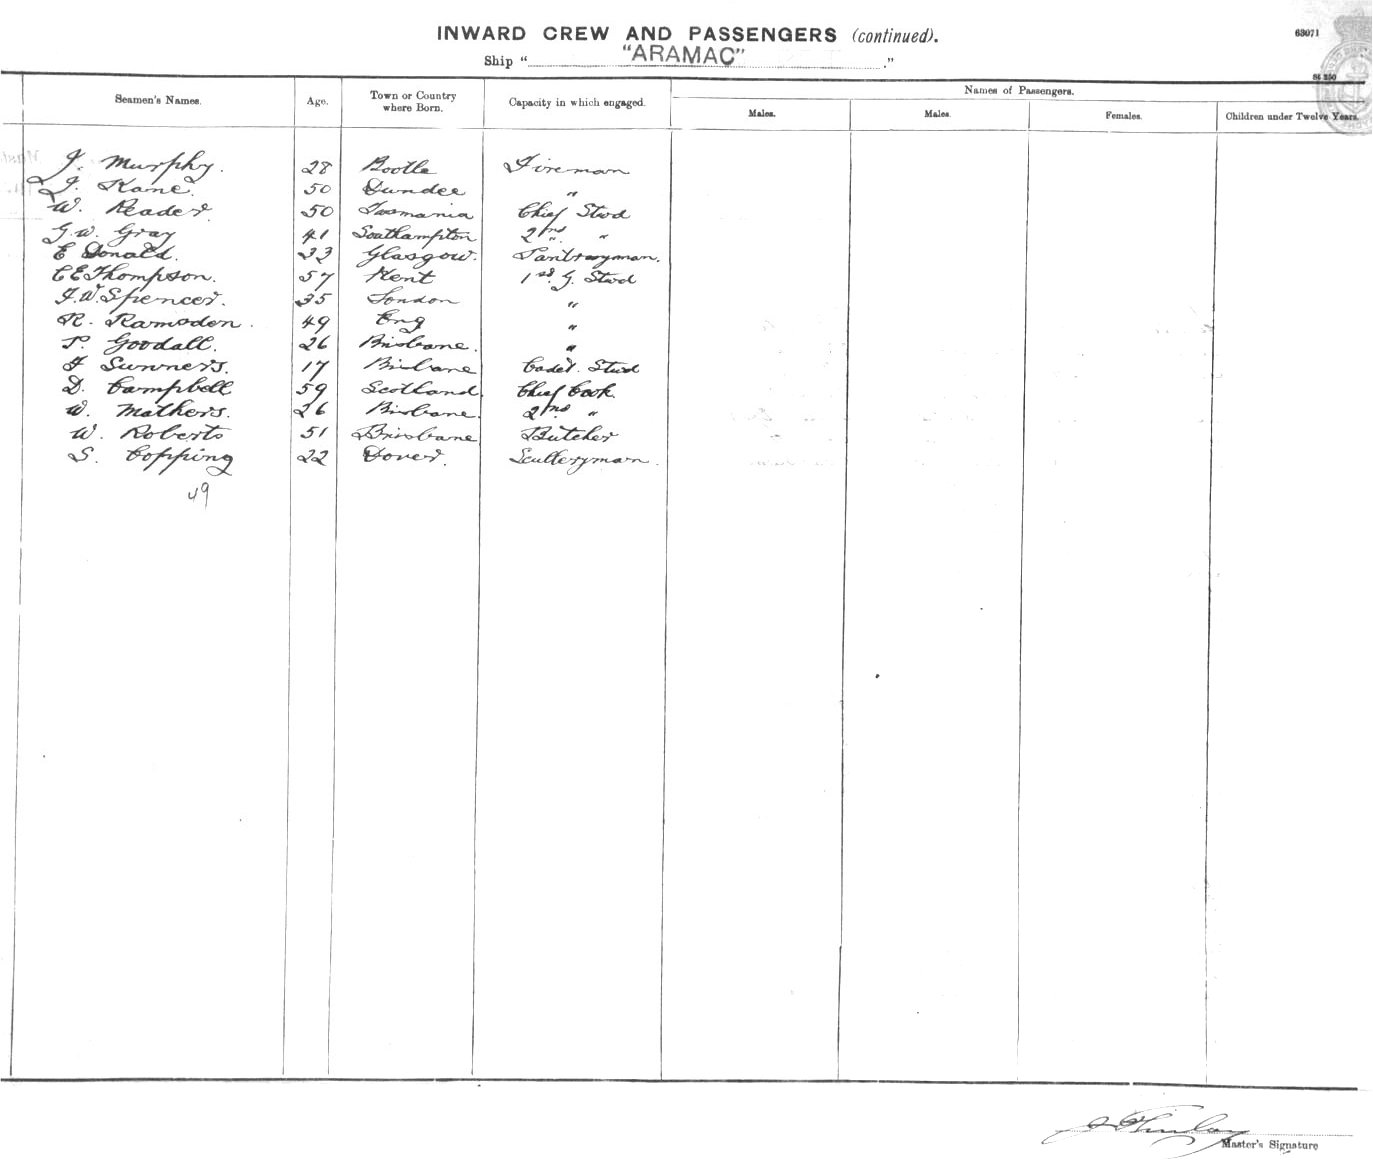 INWARD CREW AND PASSENGERS (continued).
63071
Ship "ARAMAC"."
St 250
Seamen's Names. Age. Town or Country where Born. Capacity in which engaged. Names of Passengers.
Males. Males. Females. Children under Twelve Years.
J. Murphy. 28 Bootle Fireman
J. Kane. 50 Dundee "
W. Reader 50 Tasmania Chief Stwd
G.W. Gray 41 Southampton 2nd "
E Donald. 33 Glasgow. Pantryman.
C E Thompson. 57 Kent 1st G. Stwd
J.W. Spencer. 35 London "
R. Ramsden. 49 Eng "
P. Goodall. 26 Brisbane. "
F Sunners. 17 Brisbane Cadet. Stwd
D. Campbell 59 Scotland Chief Cook.
W. Mathers. 26 Brisbane. 2nd "
W. Roberts 51 Brisbane Butcher
S. Copping 22 Dover. Sculleryman.
49
Master's Signature